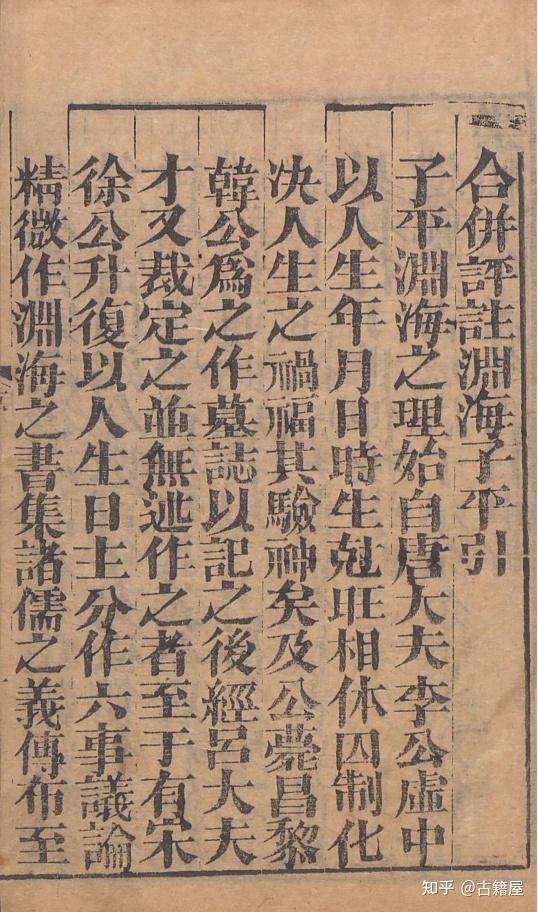 合併評註淵海子平引
子平淵海之理始自唐大夫李公虛中
以人生年月日時生尅旺相休囚制化
决人生之禍福其驗神矣及公薨昌黎
韓公爲之作墓誌以記之後經呂大夫
才又裁定之並無述作之者至于有宋
徐公升復以人生日主分作六事議論
精微作淵海之書集諸儒之義傳布至
知乎 @古籍屋